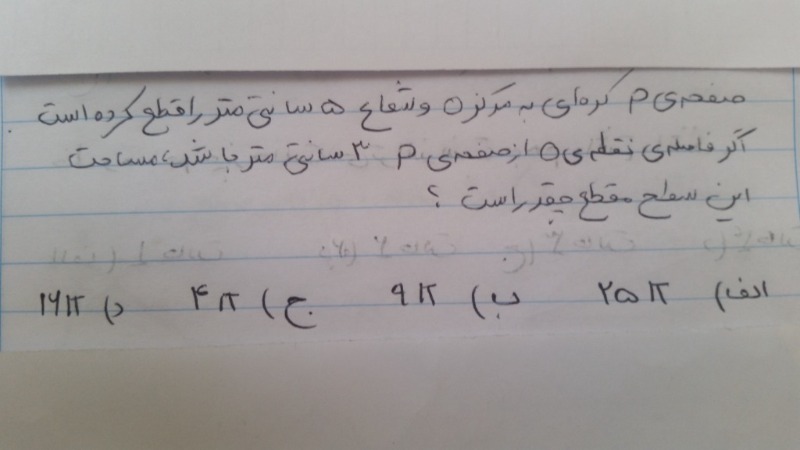 صفحه‌ی P کره‌ای به مرکز O و شعاع ۵ سانتی متر را قطع کرده است.
اگر فاصله‌ی نقطه‌ی O از صفحه‌ی P ۳ سانتی متر باشد، مساحت
این سطح مقطع چقدر است ؟
الف) ۲۵π ب) ۹π ج) ۴π د) ۱۶π